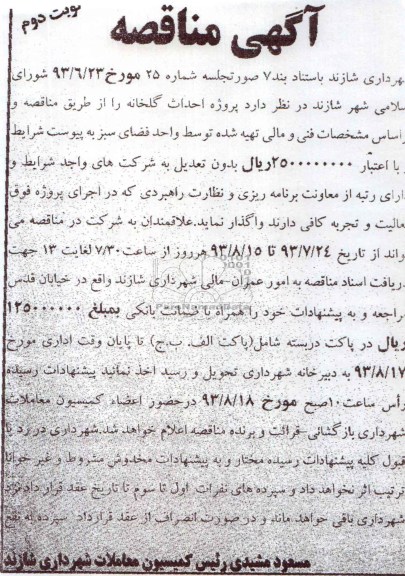 آگهی مناقصه
نوبت دوم
شهرداری شازند باستناد بند۷ صورتجلسه شماره ۲۵ مورخ ۹۳/۶/۲۳ شورای
سلامی شهر شازند در نظر دارد پروژه احداث گلخانه را از طریق مناقصه و
راساس مشخصات فنی و مالی تهیه شده توسط واحد فضای سبز به پیوست شرایط
و با اعتبار ۲۵۰۰۰۰۰۰۰۰ریال بدون تعدیل به شرکت های واجد شرایط و
دارای رتبه از معاونت برنامه ریزی و نظارت راهبردی که در اجرای پروژه فوق
عالیت و تجربه کافی دارند واگذار نماید.علاقمندان به شرکت در مناقصه می
واند از تاریخ ۹۳/۷/۲۴ تا ۹۳/۸/۱۵ هرروز از ساعت۷/۳۰ لغایت ۱۳ جهت
دریافت اسناد مناقصه به امور عمران-مالی شهرداری شازند واقع در خیابان قدس
راجعه و به پیشنهادات خود را همراه با ضمانت بانکی بمبلغ ۱۲۵۰۰۰۰۰۰
ریال در پاکت دربسته شامل(پاکت الف. ب.ج) تا پایان وقت اداری مورخ
۹۳/۸/۱۷ به دبیرخانه شهرداری تحویل و رسید اخذ نمائید پیشنهادات رسیده
رأس ساعت۱۰صبح مورخ ۹۳/۸/۱۸ درحضور اعضاء کمیسیون معاملات
شهرداری بازگشائی-قرائت و برنده مناقصه اعلام خواهد شد.شهرداری در رد یا
قبول کلیه پیشنهادات رسیده مختار و به پیشنهادات مخدوش مشروط و غیر خوانا
ترتیب اثر نخواهد داد و سپرده های نفرات اول تا سوم تا تاریخ عقد قرار داد نزد
شهرداری باقی خواهد ماند و در صورت انصراف از عقد قرارداد سپرده به نفع
مسعود مشیدی رئیس کمیسیون معاملات شهرداری شازند